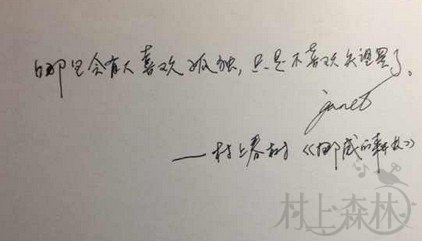 哪里会有人喜欢孤独,只是不喜欢失望罢了。
janet
——村上春树《挪威的森林》
村上森林